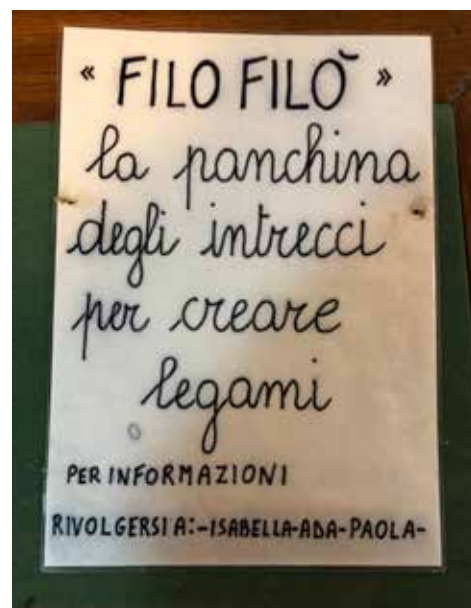 « FILO FILÒ »
la panchina
degli intrecci
per creare
legami
PER INFORMAZIONI
RIVOLGERSI A:-ISABELLA-ADA-PAOLA-